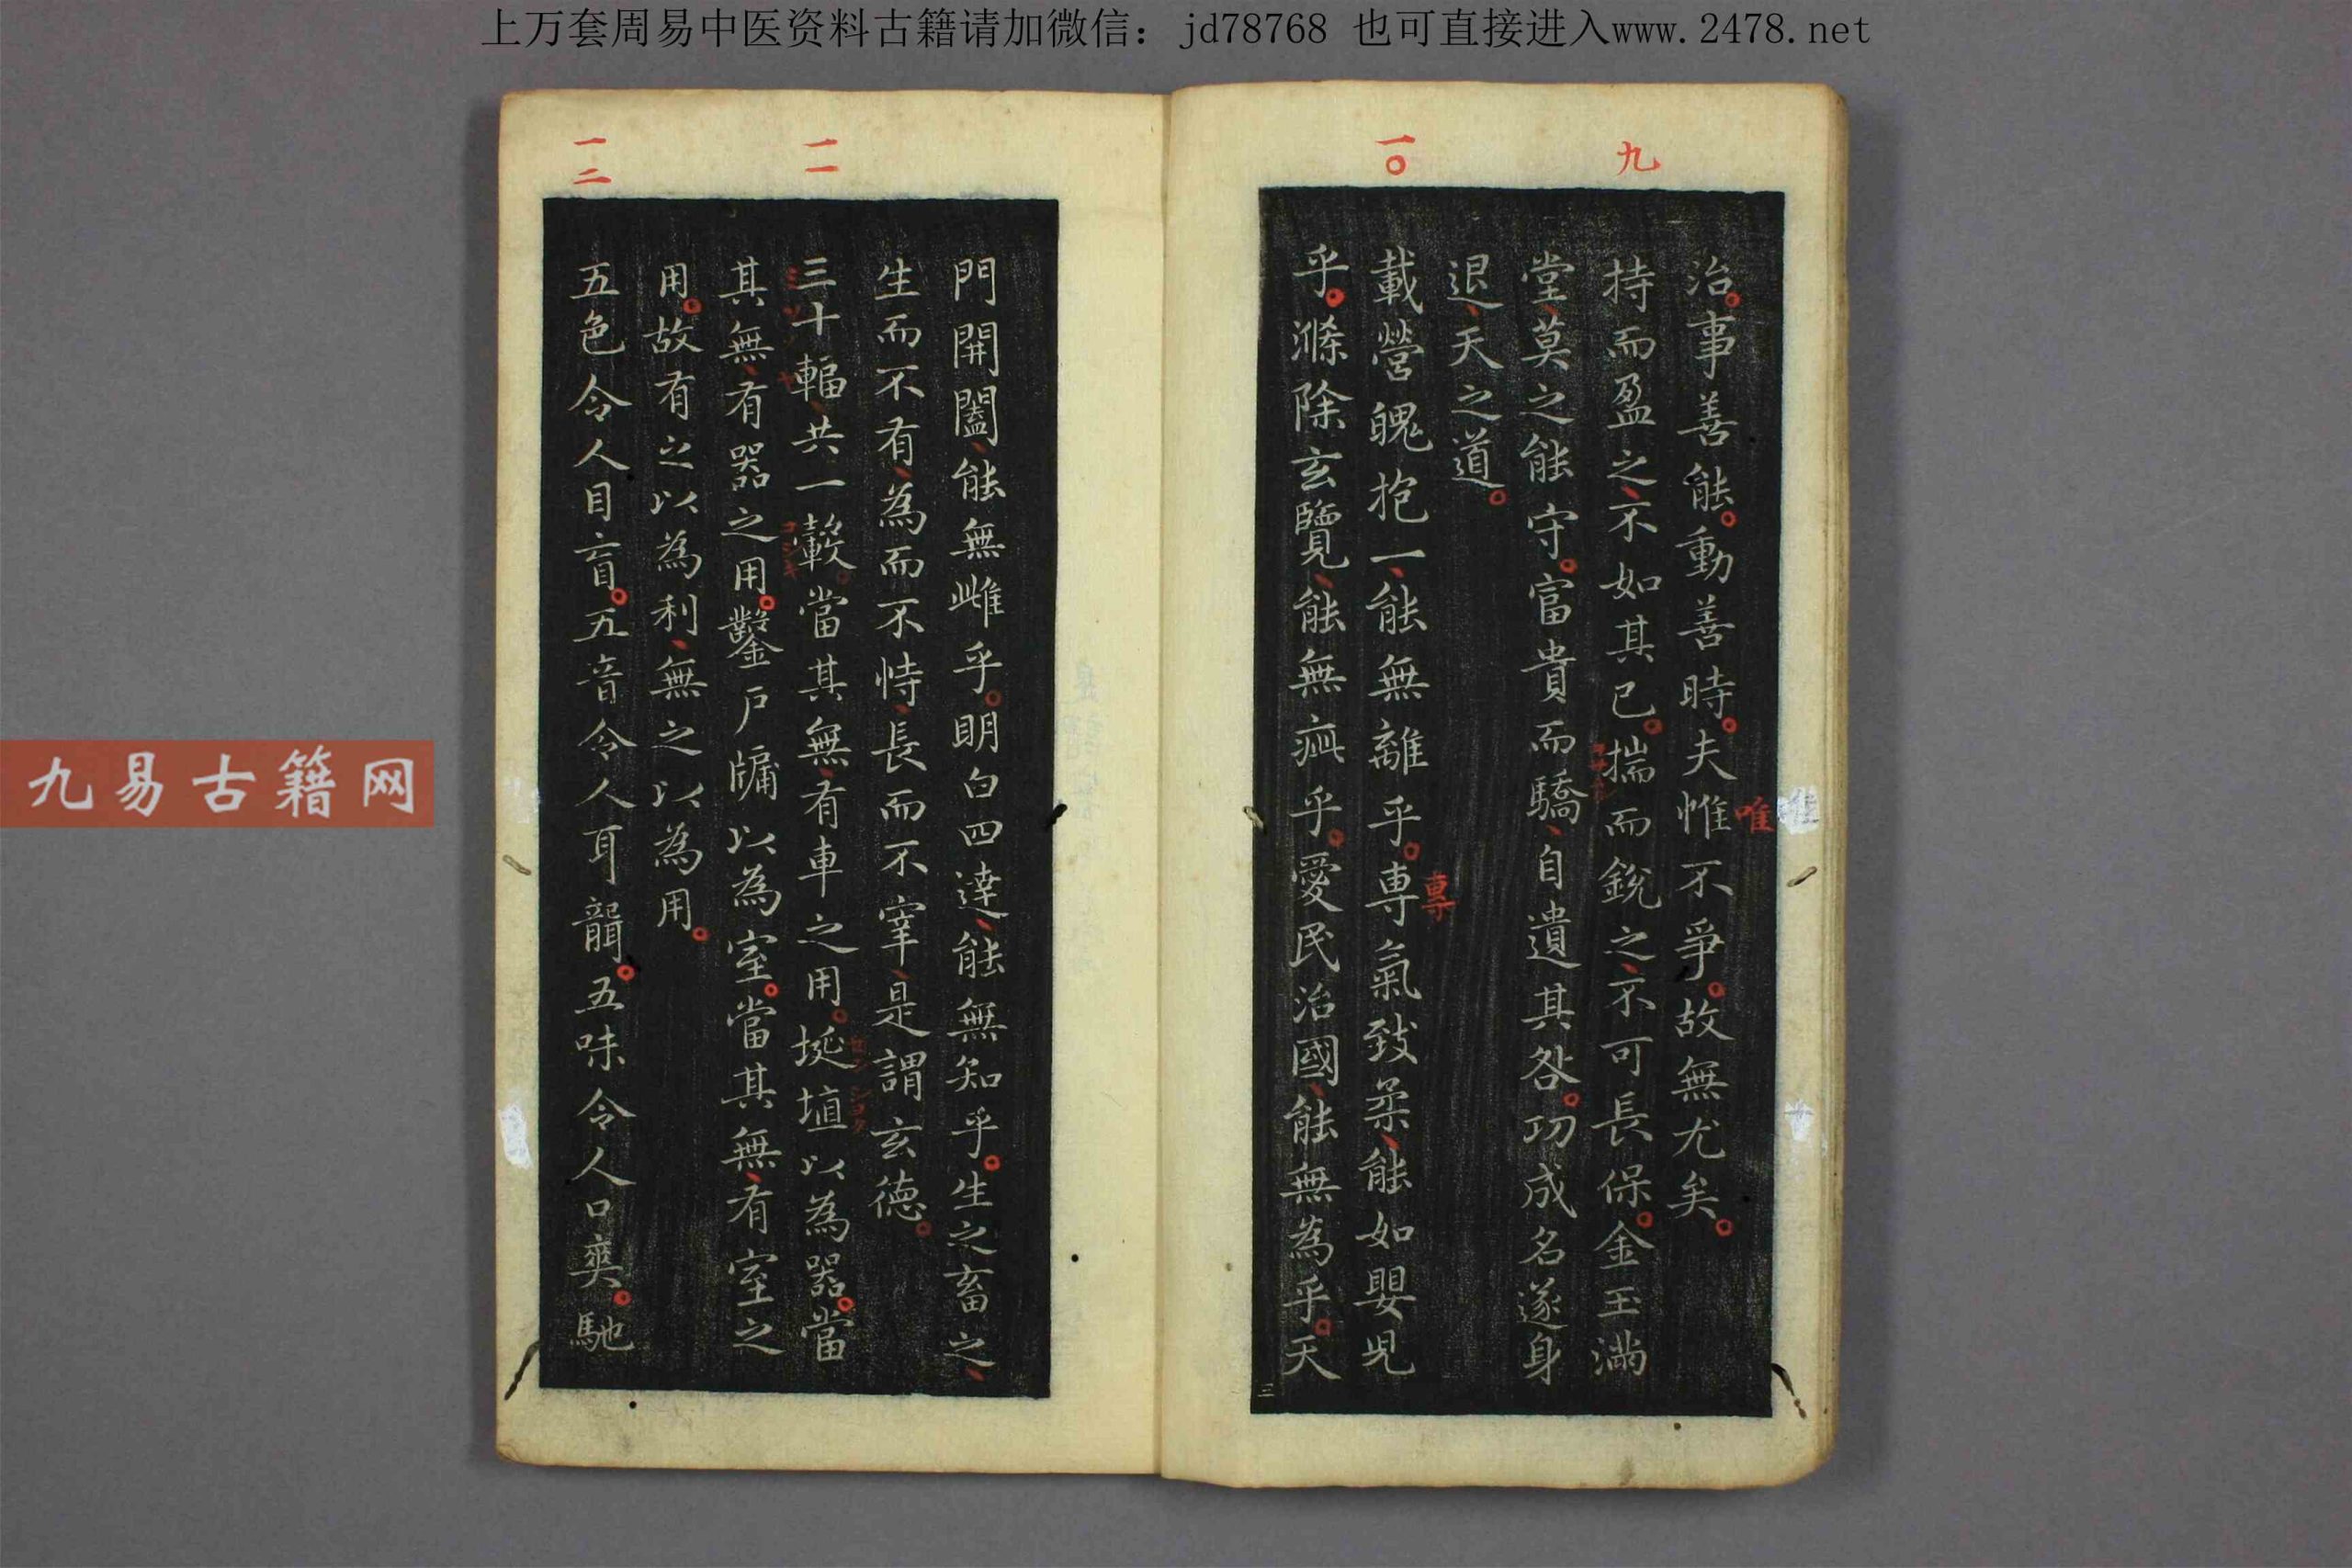 上万套周易中医资料古籍请加微信：jd78768 也可直接进入www.2478.net
九
一〇
治。事善能。動善時。夫惟不爭。故無尤矣。
唯
持而盈之、不如其已。揣而銳之、不可長保。金玉滿
堂、莫之能守。富貴而驕、自遺其咎。功成名遂身
退、天之道。
載營魄抱一、能無離乎。専氣致柔、能如嬰児
專
乎。滌除玄覽、能無疵乎。愛民治國、能無為乎。天
三
一一
一二
門開闔、能無雌乎。明白四達、能無知乎。生之畜之、
生而不有、為而不恃、長而不宰、是謂玄德。
三十輻、共一轂。當其無、有車之用。埏埴以為器。當
コシキ
セン ショク
其無、有器之用。鑿戶牖以為室。當其無、有室之
用。故有之以為利、無之以為用。
五色令人目盲。五音令人耳聾。五味令人口爽。馳
九易古籍网